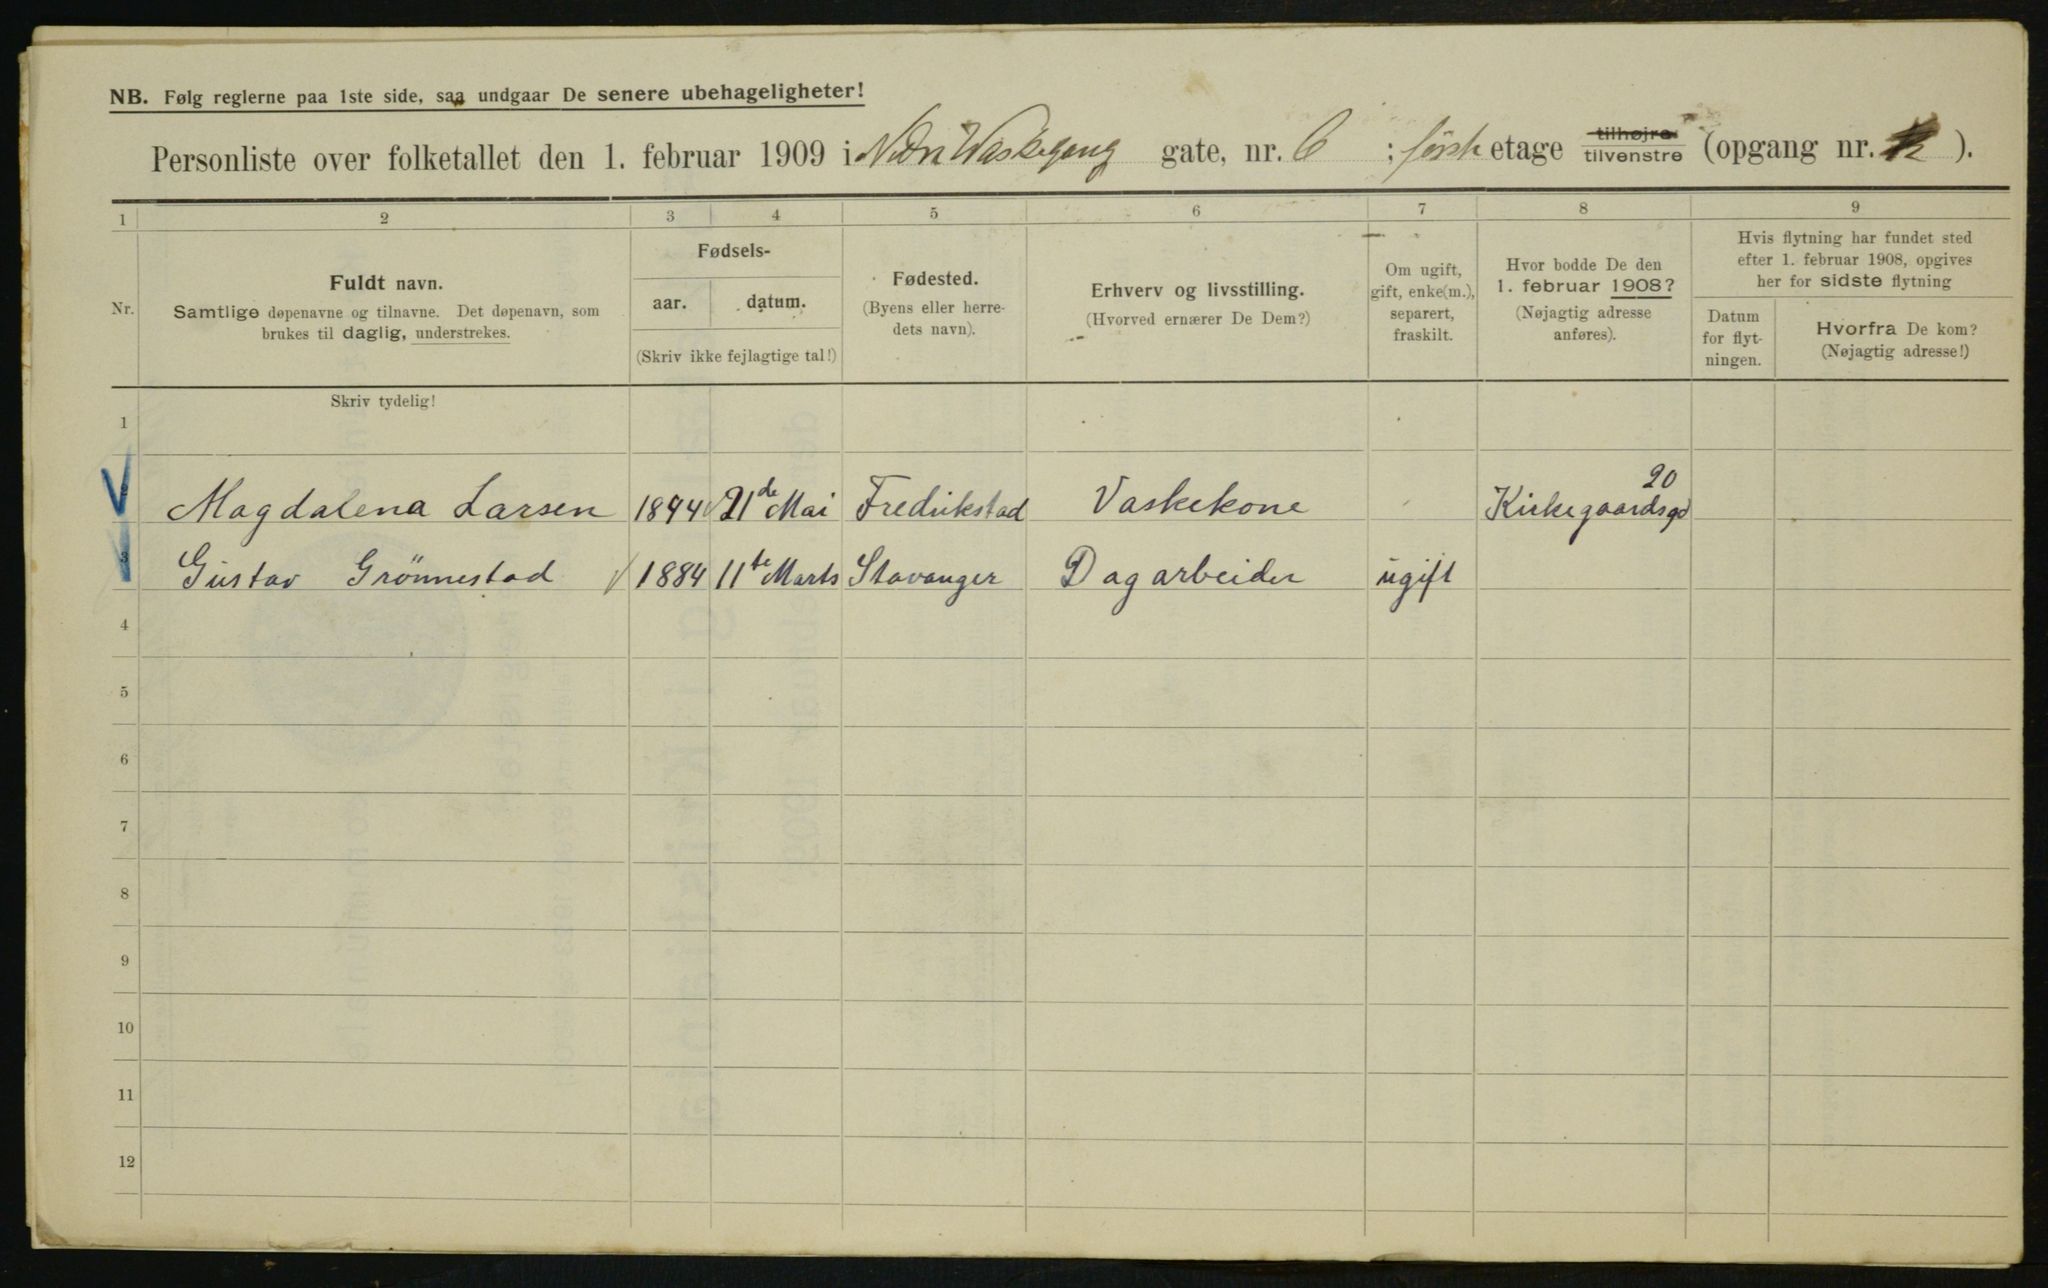 NB. Følg reglerne paa 1ste side, saa undgaar De senere ubehageligheter!
Personliste over folketallet den 1. februar 1909 i Nedre Waskegang gate, nr. 6 ; første etage tilhøjre tilvenstre (opgang nr. ).
1 2 3 4 5 6 7 8 9
Nr.
Fuldt navn.
Samtlige døpenavne og tilnavne. Det døpenavn, som
brukes til daglig, understrekes.
Fødsels-
aar. datum.
(Skriv ikke fejlagtige tal!)
Fødested.
(Byens eller herre-
dets navn).
Erhverv og livsstilling.
(Hvorved ernærer De Dem?)
Om ugift,
gift, enke(m.),
separert,
fraskilt.
Hvor bodde De den
1. februar 1908?
(Nøjagtig adresse
anføres).
Hvis flytning har fundet sted
efter 1. februar 1908, opgives
her for sidste flytning
Datum
for flyt-
ningen.
Hvorfra De kom?
(Nøjagtig adresse!)
Skriv tydelig!
1
2 Magdalena Larsen 1844 21de Mai Fredrikstad Vaskekone Kirkegaardsgd 20
3 Gustav Grönnestad 1884 11te Marts Stavanger Dagarbeider ugift
4
5
6
7
8
9
10
11
12